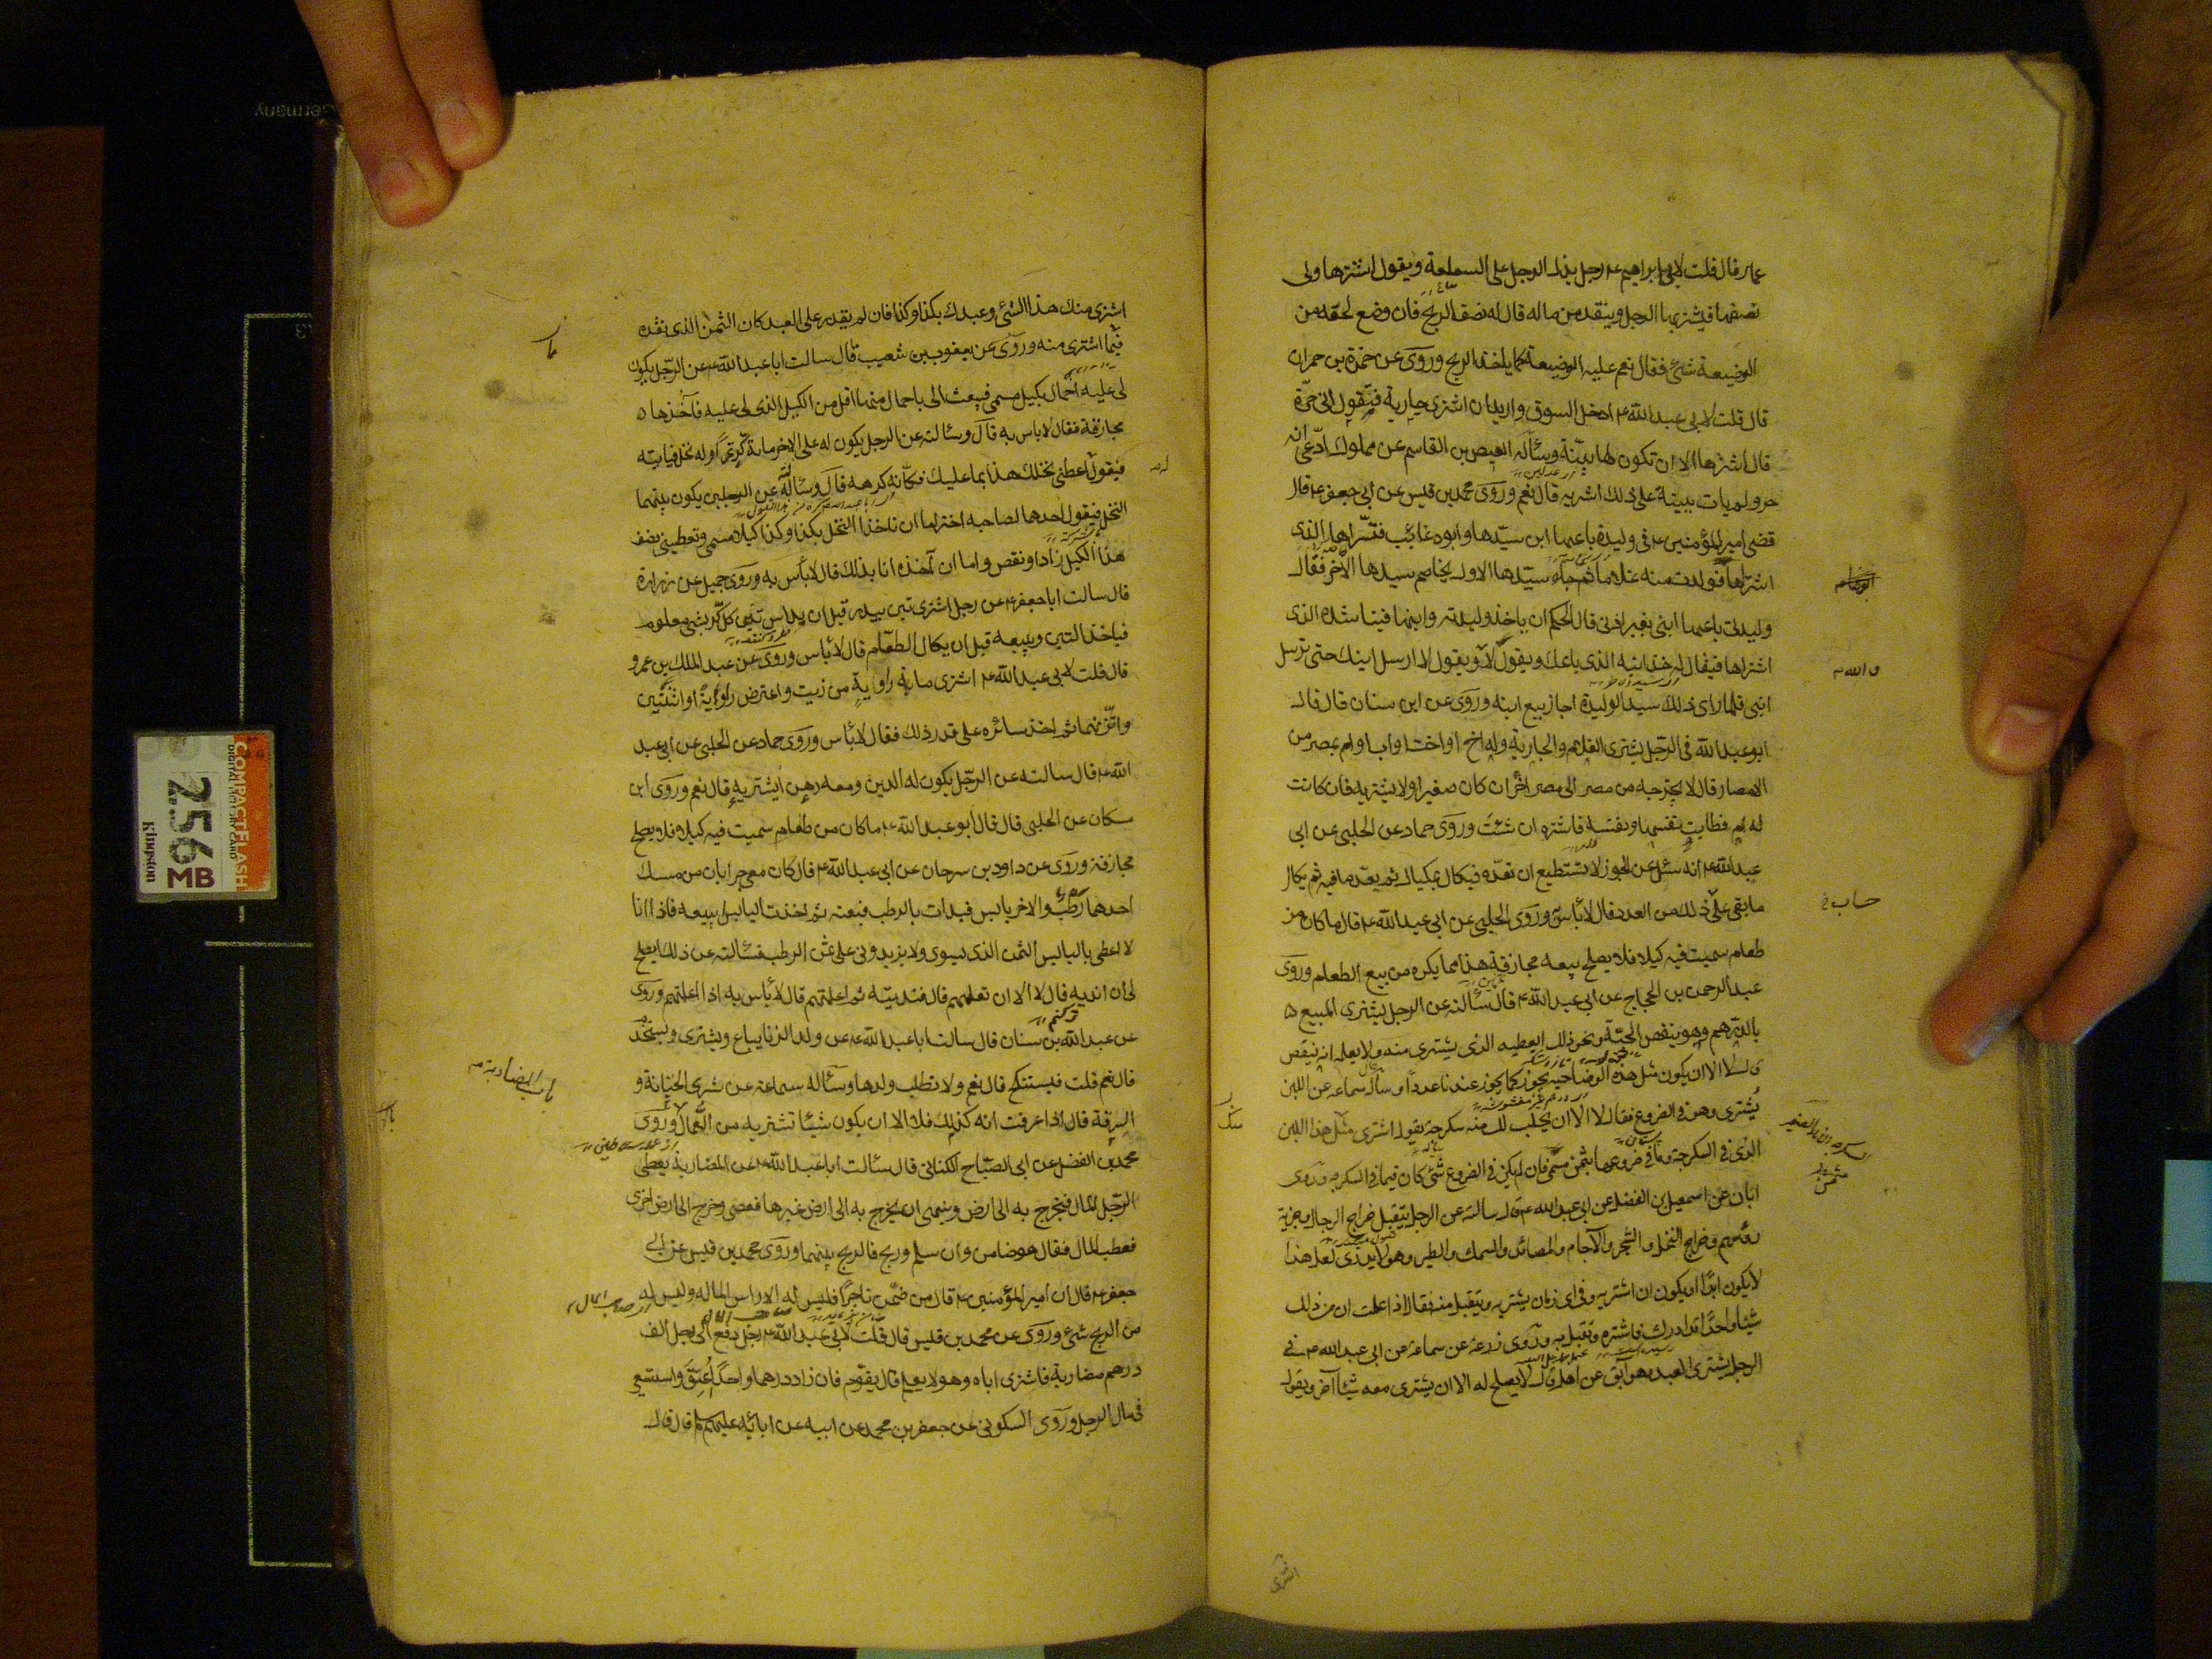 عمار قال قلت لابي ابراهيم ع رجل يدل الرجل على السلعة ويقول اشترها ولي
نصفها فيشتريها الرجل وينقد من ماله قال له نصف الربح فان وضع لحقه من
الوضيعة شئ فقال نعم عليه الوضيعة كما ياخذ الربح وروى عن حمزة بن حمران
قال قلت لابي عبد الله ع ادخل السوق واريد ان اشترى جارية فتقول انى حرة
قال اشترها الا ان تكون لها بينة وسأله العيص بن القاسم عن مملوك ادعى انه
حر ولم يات ببينة على ذلك اشتريه قال نعم وروى محمد بن قيس عن ابي جعفر ع قال
قضى امير المؤمنين ع في وليدة باعها ابن سيدها وابوه غائب فتسراها الذى
اشتراها فولدت منه غلاما ثم جاء سيدها الاول يخاصم سيدها الآخر فقال
وليدتى باعها ابنى بغير اذنى قال الحكم ان ياخذ وليدته وابنها فيناشده الذى
اشتراها فيقال له خذ ابنه الذى باعك ويقول لا ويقول لا ارسل ابنك حتى ترسل
ابنى فلما راى ذلك سيد الوليدة اجاز بيع ابنه وروى عن ابن سنان قال قال
ابو عبد الله في الرجل يشترى الغلام والجارية وله اخ او اخت او اب او ام بمصر من
الامصار قال لا يخرجه من مصر الى مصر آخر ان كان صغيرا ولا يشتريه فان كانت
له ام فطابت نفسها ونفسه فاشتره ان شئت وروى حماد عن الحلبي عن ابي
عبد الله ع انه سئل عن الجوز لا نستطيع ان نعده فيكال بمكيال ثم يعد ما فيه ثم يكال
ما بقى على ذلك من العدد قال لا بأس وروى الحلبي عن ابي عبد الله ع قال ما كان من
حساب خ
طعام سميت فيه كيلا فلا يصلح بيعه مجازفة هذا مما يكره من بيع الطعام وروى
عبد الرحمن بن الحجاج عن ابي عبد الله ع قال سألته عن الرجل يشترى المبيع
بالدرهم وهو ينقص الحبة ونحو ذلك ايعطيه الذى يشترى منه ولا يعلمه انه ينقص
قال لا الا ان يكون مثل هذه الوضاحية يجوز كما يجوز عندنا عددا وسأله سماعة عن اللبن
يشترى وهو في الضروع فقال لا الا ان يحلب لك منه سكرجة يقول اشترى مثل هذا اللبن
الذى في السكرجة وما في ضروعها بثمن مسمى فان لم يكن في الضروع شئ كان فيما في السكرجة وروى
ابان عن اسمعيل بن الفضل عن ابي عبد الله ع قال سالته عن الرجل يتقبل خراج الرجال وجزية
رؤسهم وخراج النخل والشجر والآجام والمصائد والسمك والطير وهو لا يدرى لعل هذا
لا يكون ابدا او يكون ان اشتريه وفي اى زمان يشتريه ويتقبل منه فقال اذا علمت ان من ذلك
شيئا واحدا قد ادرك فاشتره وتقبل به وروى زرعة عن سماعة عن ابي عبد الله ع في
الرجل يشترى العبد وهو آبق عن اهله قال لا يصلح له الا ان يشترى معه شيئا آخر ويقول
اشترى
اشترى منك هذا الشئ وعبدك بكذا وكذا فان لم يقدر على العبد كان الثمن الذى نقده
فيما اشترى منه وروى عن يعقوب بن شعيب قال سالت ابا عبد الله ع عن الرجل يكون
لى عليه احمال بكيل مسمى فيبعث الى باحمال منها اقل من الكيل الذى لى عليه فآخذها
مجازفة فقال لا باس به قال وسئالته عن الرجل يكون له على الاخر ماية كر تمرا وله نخل فياتيه
فيقول اعطنى نخلك هذا بما عليك فكأنه كرهه قال وسئالته عن الرجلين يكون بينهما
النخل فيقول احدهما لصاحبه اختر اما ان تاخذ النخل بكذا وكذا كيلا مسمى وتعطينى نصف
هذا الكيل زاد او نقص واما ان آخذه انا بذلك قال لا بأس به وروى جميل عن زرارة
قال سالت ابا جعفر ع عن رجل اشترى تبن بيدر قبل ان يداس تبن كل كر بشئ معلوم
فياخذ التبن ويبيعه قبل ان يكال الطعام قال لا بأس وروى عن عبد الملك بن عمرو
قال قلت لابي عبد الله ع اشترى ماية راوية من زيت واعترض راوية او اثنتين
واتزنهما ثم اخذ سائره على قدر ذلك فقال لا بأس وروى حماد عن الحلبى عن ابي عبد
الله ع قال سالته عن الرجل يكون له الدين ومعه رهن ايشتريه قال نعم وروى ابن
مسكان عن الحلبى قال قال ابو عبد الله ع ما كان من طعام سميت فيه كيلا فلا يصلح
مجازفة وروى عن داود بن سرحان عن ابي عبد الله ع قال كان معى جرابان من مسك
احدهما رطب والاخر يابس فبدات بالرطب فبعته ثم اخذت اليابس ابيعه فاذا انا
لا اعطى باليابس الثمن الذى يسوى ولا يزيدونى على ثمن الرطب فسئالته عن ذلك ايصلح
لى ان انديه قال لا الا ان تعلمهم قال فنديته ثم اعلمتهم قال لا بأس به اذا اعلمتهم وروى
عن عبد الله بن سنان قال سالت ابا عبد الله ع عن ولد الزنا يباع ويشترى ويستخدم
قال نعم قلت فيستنكح قال نعم ولا تطلب ولدها وسئاله سماعة عن شرى الخيانة و
السرقة قال اذا عرفت انه كذلك فلا الا ان يكون شيئا تشتريه من العمال وروى
باب المضاربة
محمد بن الفضل عن ابي الصباح الكنانى قال سئالت ابا عبد الله ع عن المضاربة يعطى
الرجل المال فيخرج به الى ارض وينهى ان يخرج به الى ارض غيرها فعصى وخرج الى ارض اخرى
فعطب المال فقال هو ضامن وان سلم وربح فالربح بينهما وروى محمد بن قيس عن ابي
جعفر ع قال ان امير المؤمنين ع قال من ضمن تاجرا فليس له الا راس المال وليس له
من الربح شئ وروى عن محمد بن قيس قال قلت لابي عبد الله ع رجل دفع الى رجل الف
درهم مضاربة فاشترى اباه وهو لا يعلم قال يقوم فان زاد درهما واحدا اعتق واستسعى
في مال الرجل وروى السكونى عن جعفر بن محمد عن ابيه عن ابائه عليهم السلام قال قال
COMPACTFLASH
256 MB
Kingston
Germany